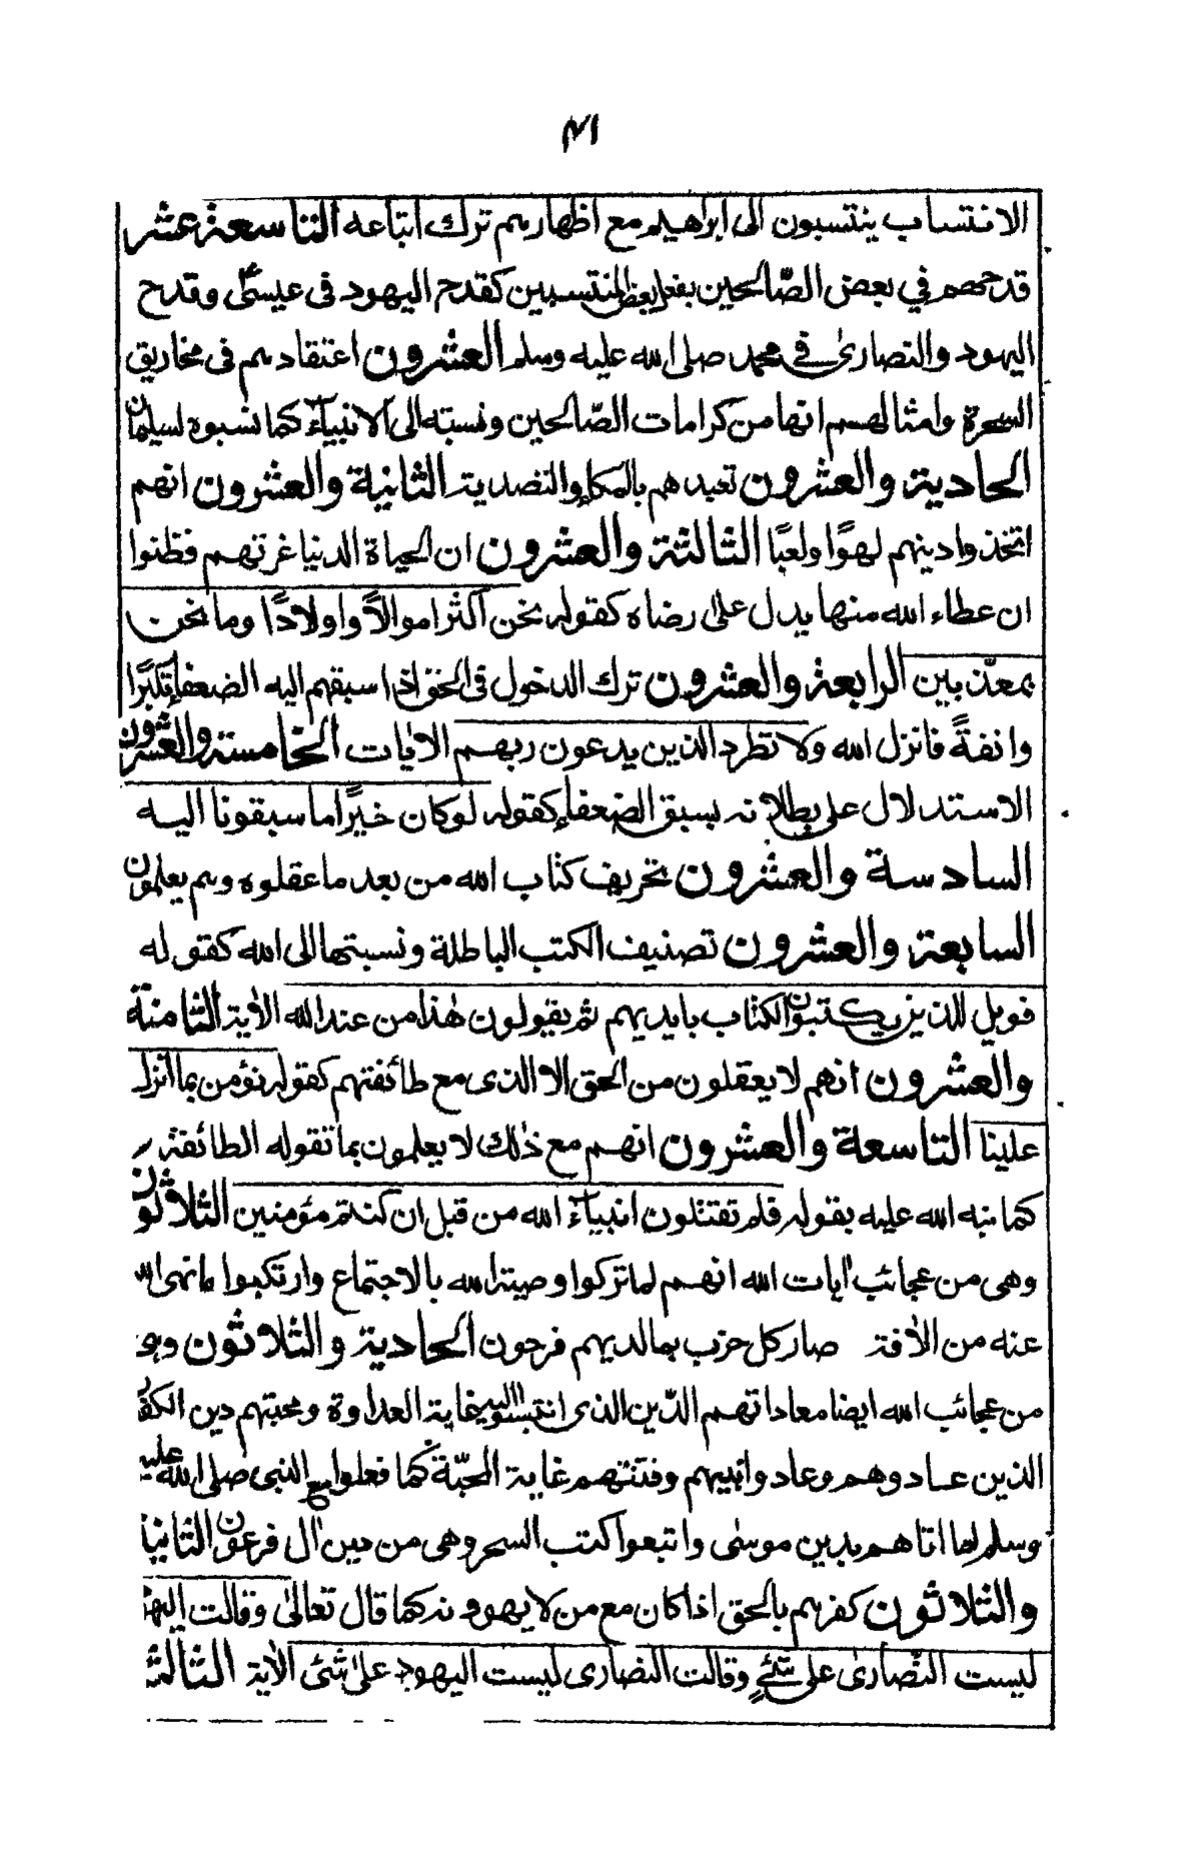 ٣١
الانتساب ينتسبون الى ابراهيم مع اظهارهم ترك اتباعه التاسعة عشر
قدحهم في بعض الصّالحين بفعل بعض المنتسبين كقدح اليهود فى عيسىٰ وقدح
اليهود والنصارىٰ فى محمد صلى الله عليه وسلم العشرون اعتقادهم فى مخاريق
السحرة وامثالهم انها من كرامات الصّالحين ونسبته الى الانبياء كما نسبوه لسليمان
الحادية والعشرون تعبدهم بالمكاء والتصدية الثانية والعشرون انهم
اتخذوا دينهم لهوًا ولعبًا الثالثة والعشرون ان الحياة الدنيا غرتهم فظنوا
ان عطاء الله منها يدل على رضاه كقوله نحن اكثر اموالاً واولادًا وما نحن
بمعذّبين الرابعة والعشرون ترك الدخول فى الحق اذا سبقهم اليه الضعفاء تكبّرًا
وانفةً فانزل الله ولا تطرد الذين يدعون ربهم الاٰيات الخامسة والعشرون
الاستدلال على بطلانه بسبق الضعفاء كقوله لوكان خيرًا ما سبقونا اليه
السادسة والعشرون تحريف كتاب الله من بعد ما عقلوه وهم يعلمون
السابعة والعشرون تصنيف الكتب الباطلة ونسبتها الى الله كقوله
فويل للذين يكتبون الكتاب بايديهم ثم يقولون هٰذا من عند الله الاٰية الثامنة
والعشرون انهم لا يعقلون من الحق الا الذى مع طائفتهم كقوله نؤمن بما انزل
علينا التاسعة والعشرون انهم مع ذٰلك لا يعلمون بما تقوله الطائفة
كما نبه الله عليه بقوله فلم تقتلون انبياء الله من قبل ان كنتم مؤمنين الثلاثون
وهى من عجائب اٰيات الله انهم لما تركوا وصية الله بالاجتماع وارتكبوا ما نهى الله
عنه من الافة صار كل حزب بما لديهم فرحون الحادية والثلاثون وهى
من عجائب الله ايضا معاداتهم الدّين الذى انتسبوا اليه غاية العداوة ومحبتهم دين الكف
الذين عادوهم وعادوا نبيهم وفتنتهم غاية المحبّة كما فعلوا مع النبى صلى الله عليه
وسلم لما اتاهم بدين موسٰى واتبعوا كتب السحر وهى من دين اٰل فرعون الثانيا
والثلاثون كفرهم بالحق اذا كان مع من لا يهوونه كما قال تعالىٰ وقالت اليهو
ليست النّصارىٰ على شئٍ وقالت النصارى ليست اليهود علىٰ شئى الاٰية الثالثة